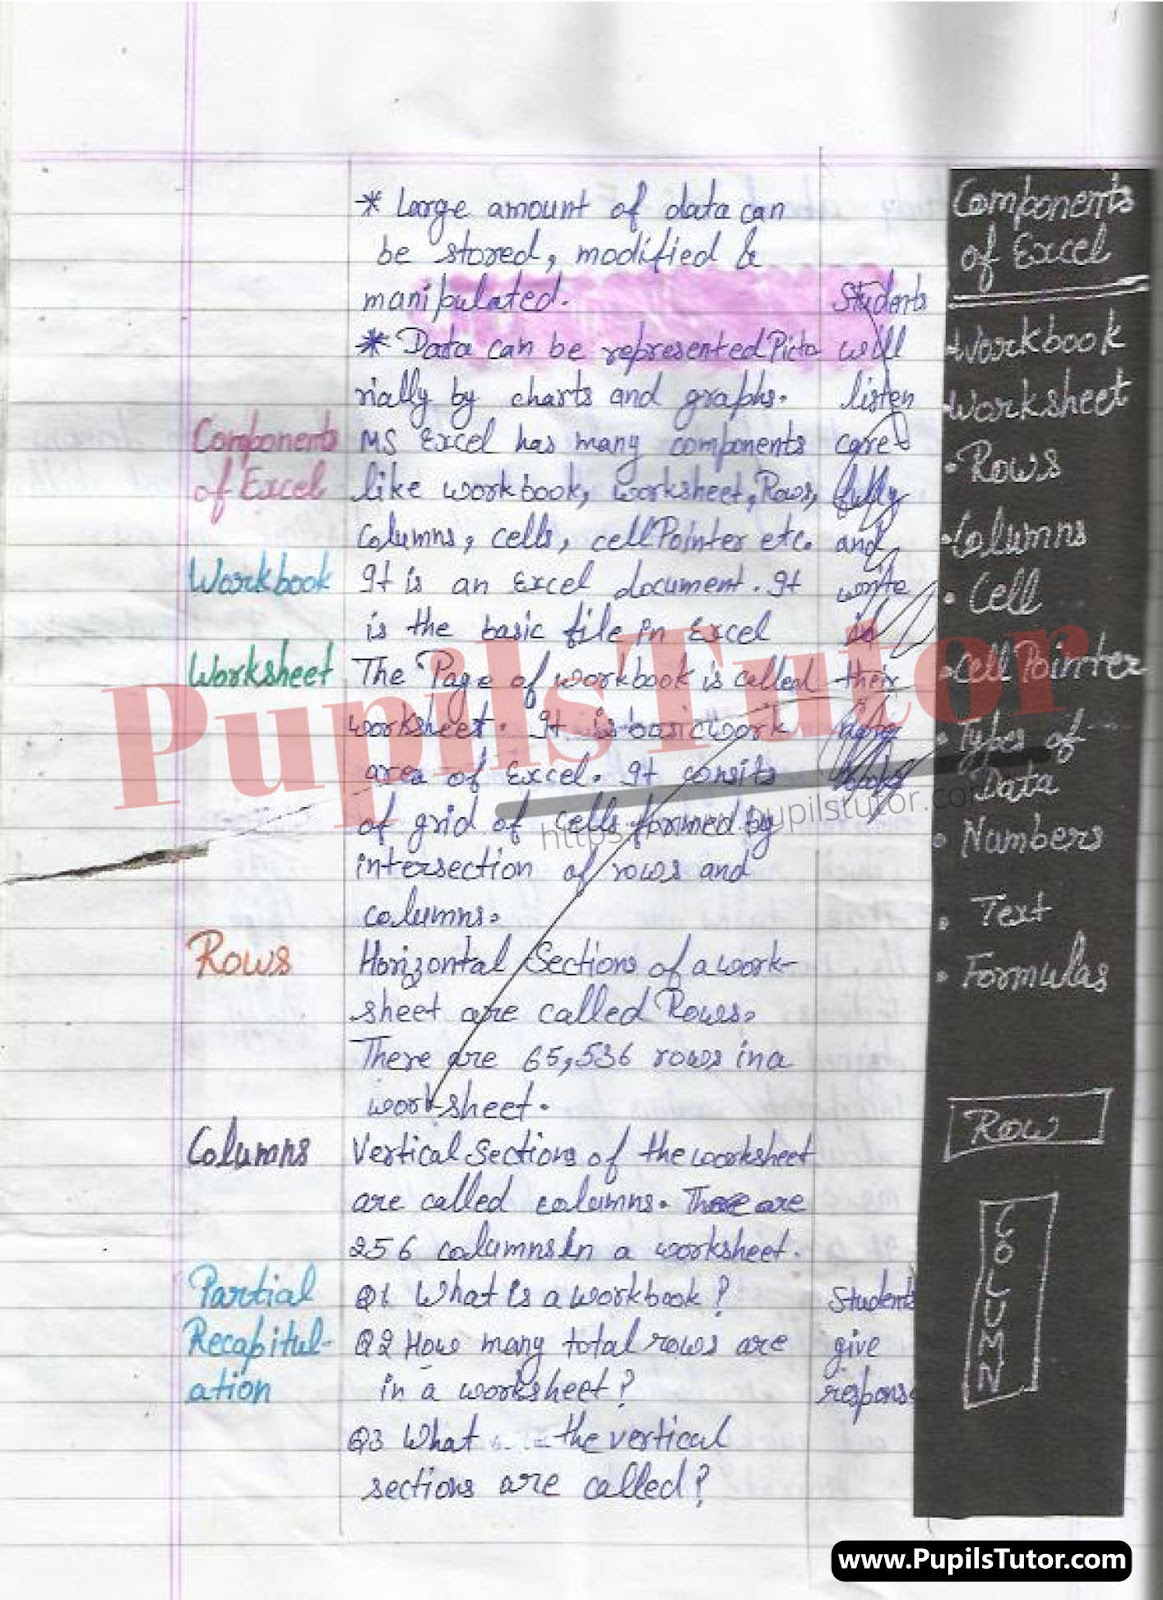 * Large amount of data can
be stored, modified &
manipulated.
* Data can be represented Picto
rially by charts and graphs.
Components
of Excel
MS Excel has many components
like workbook, worksheet, Rows,
Columns, cells, cell Pointer etc.
Workbook
It is an Excel document. It
is the basic file in Excel
Worksheet
The Page of workbook is called
worksheet. It is basic work
area of Excel. It consits
of grid of cells formed by
intersection of rows and
columns.
Rows
Horizontal Sections of a work-
sheet are called Rows.
There are 65,536 rows in a
worksheet.
Columns
Vertical Sections of the worksheet
are called columns. There are
256 columns in a worksheet.
Partial
Recapitul-
ation
Q1 What is a workbook?
Q2 How many total rows are
in a worksheet?
Q3 What the vertical
sections are called?
Students
will
listen
care
fully
and
write
in
their
Students
give
response
Components
of Excel
•Workbook
•Worksheet
• Rows
•Columns
• Cell
•Cell Pointer
• Types of
Data
• Numbers
• Text
• Formulas
Row
COLUMN
Pupils Tutor
pupilstutor.co
www.PupilsTutor.com